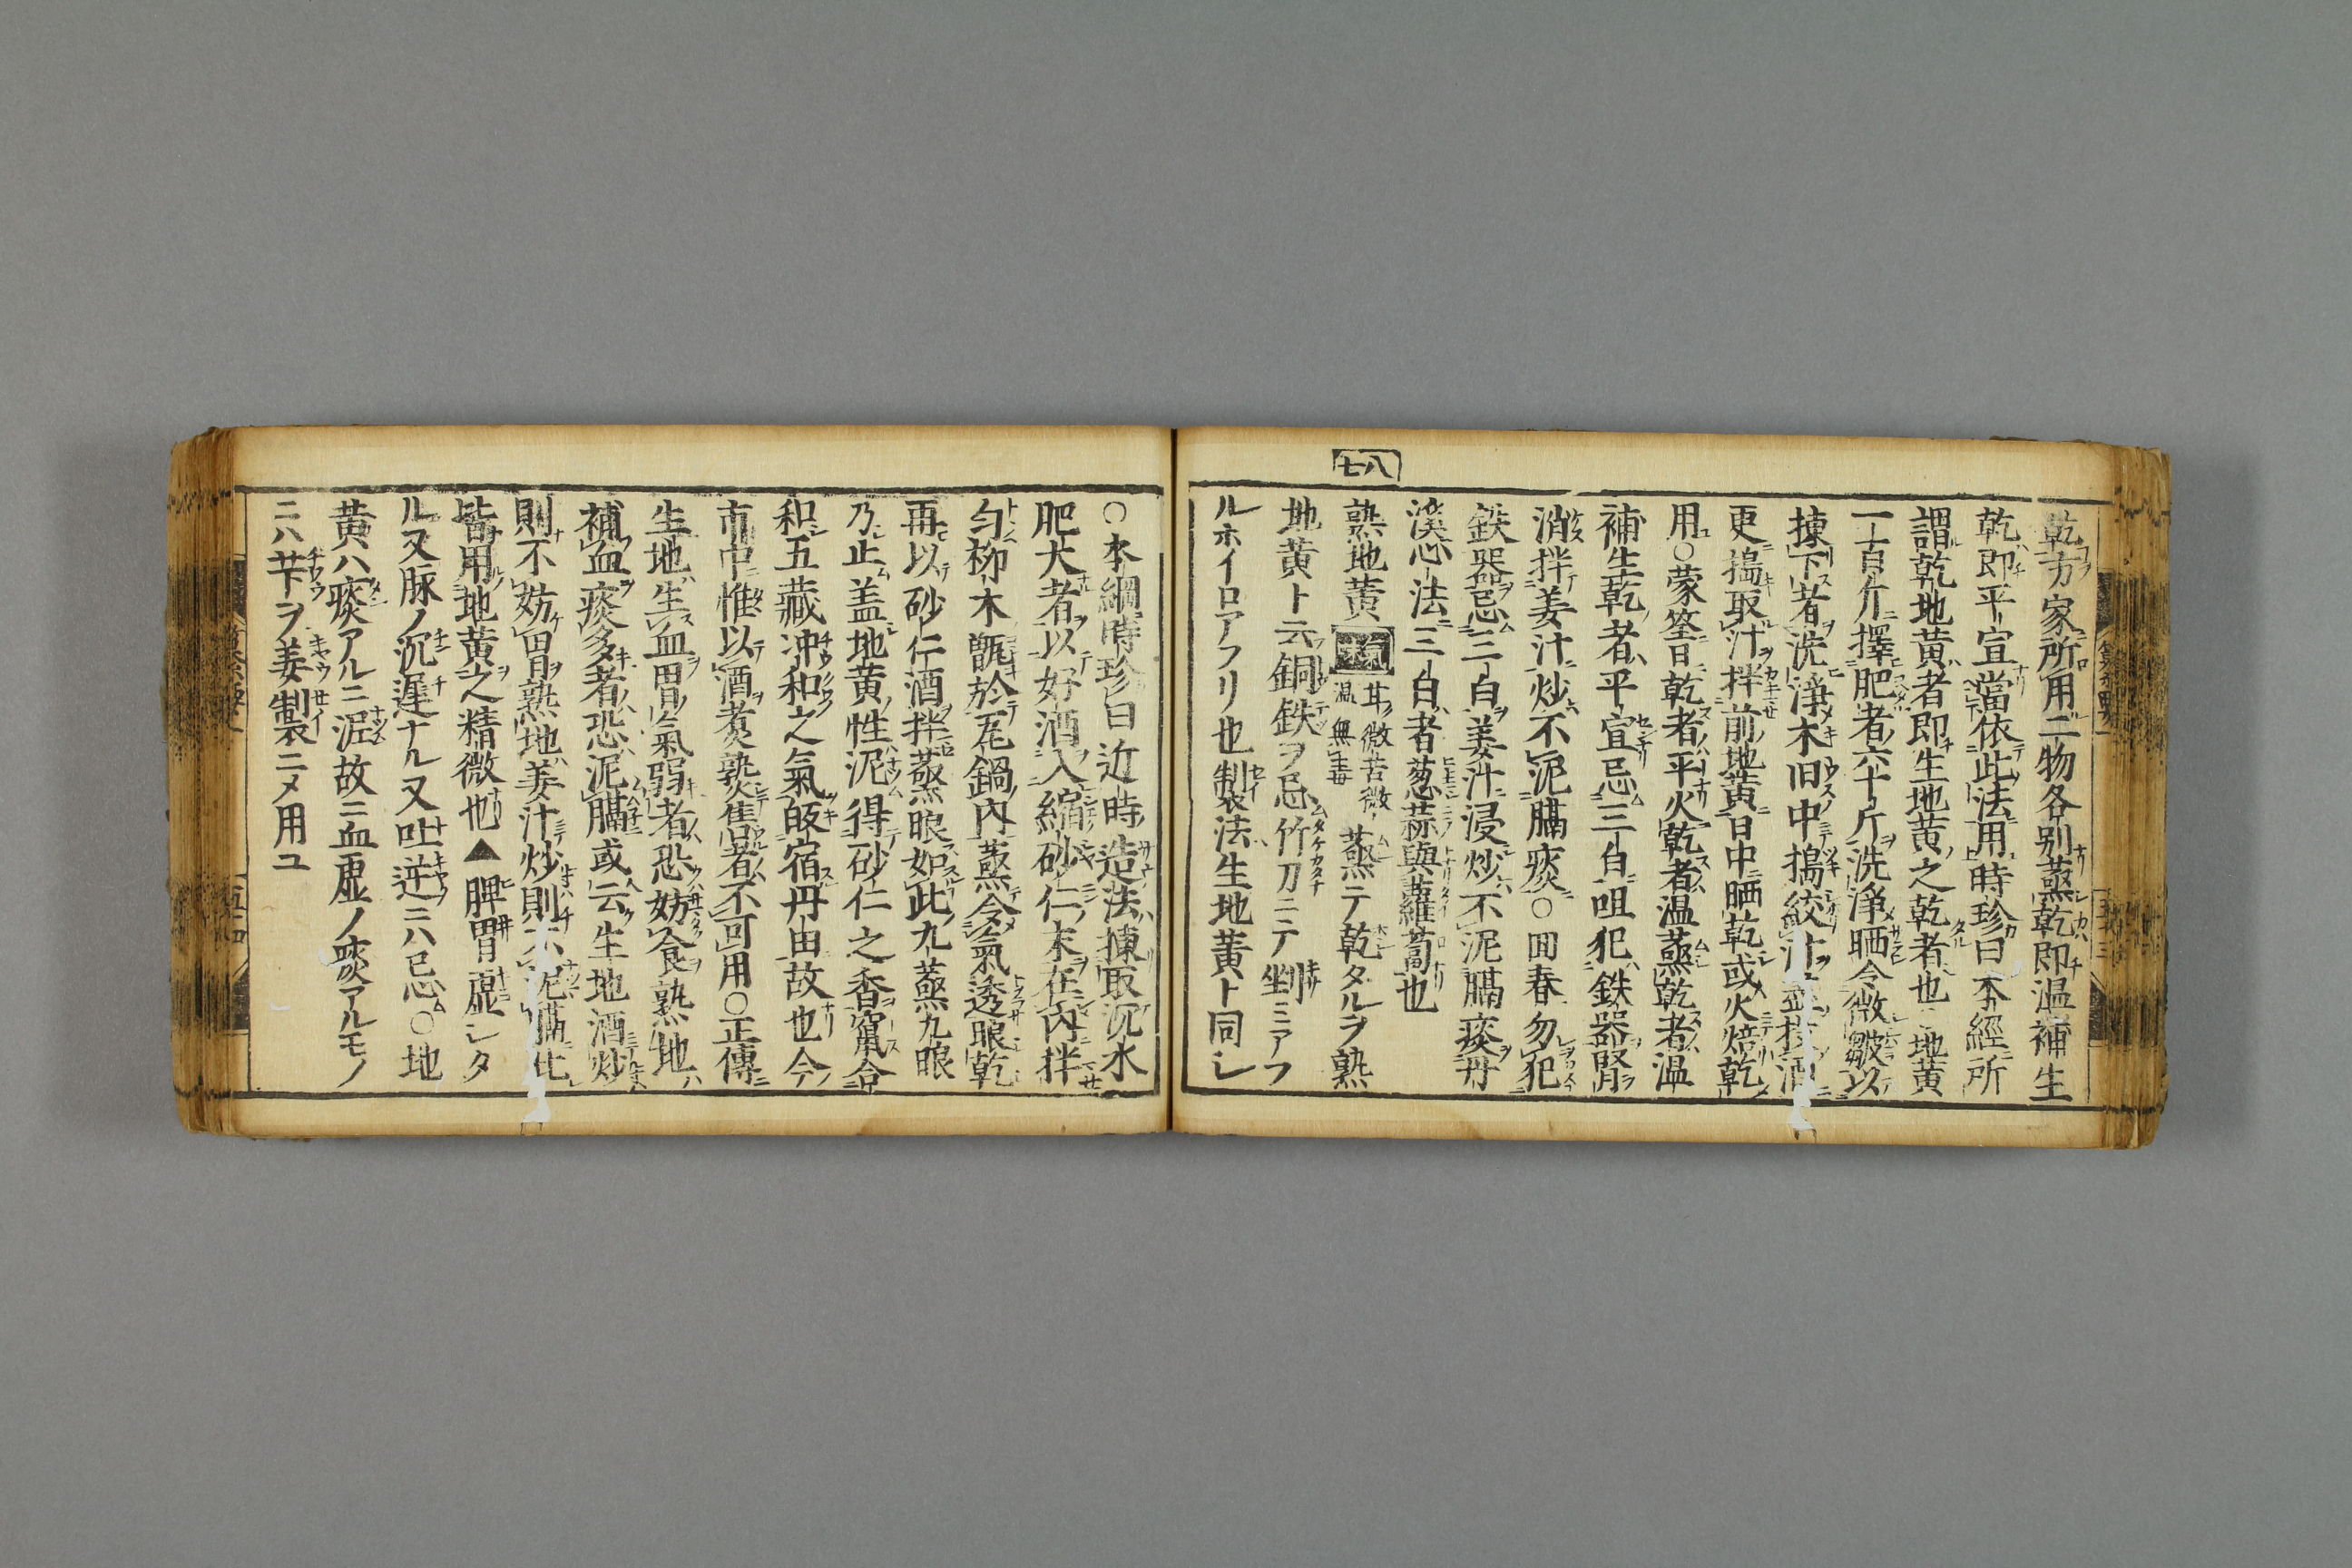 乾方家所用二物各別蒸乾即温補生
乾即平宣當依此法用時珍曰本經所
謂乾地黄者即生地黄之乾者也地黄
一百斤擇肥者六十斤洗淨晒令微皺以
揀下者洗淨木臼中搗絞汁
更搗取汁拌前地黄日中晒乾或火焙乾
用○蒙筌日乾者平火乾者温蒸乾者温
補生乾者平宣忌三白咀犯鉄器腎
消拌姜汁炒不泥膈痰○囬春勿犯
鉄器忌三白姜汁浸炒不泥膈痰丹
溪心法三白者葱蒜與蘿蔔也
七八
熟地黄 甘微苦微温無毒 蒸テ乾タルヲ熟
地黄ト云銅鉄ヲ忌竹刀ニテ剉ミアフ
ルホイロアフリ也製法生地黄ト同シ
○本綱時珍曰近時造法揀取沉水
肥大者以好酒入縮砂仁末在內拌
勻柳木甑於瓦鍋內蒸令氣透晾乾
再以砂仁酒拌蒸晾如此九蒸九晾
乃止盖地黄性泥得砂仁之香竄合
和五藏冲和之氣皈宿丹田故也今
市中惟以酒煮熟售者不可用○正傳
生地生血胃氣弱者恐妨食熟地
補血痰多者恐泥膈或云生地酒炒
則不妨胃熟地姜汁炒則不泥膈此
皆用地黄之精微也▲脾胃虚シタ
ル又脉ノ沉遅ナル又吐逆ニハ忌○地
黄ハ痰アルニ泥故ニ血虚ノ痰アルモノ
ニハ苄ヲ姜製ニメ用ユ